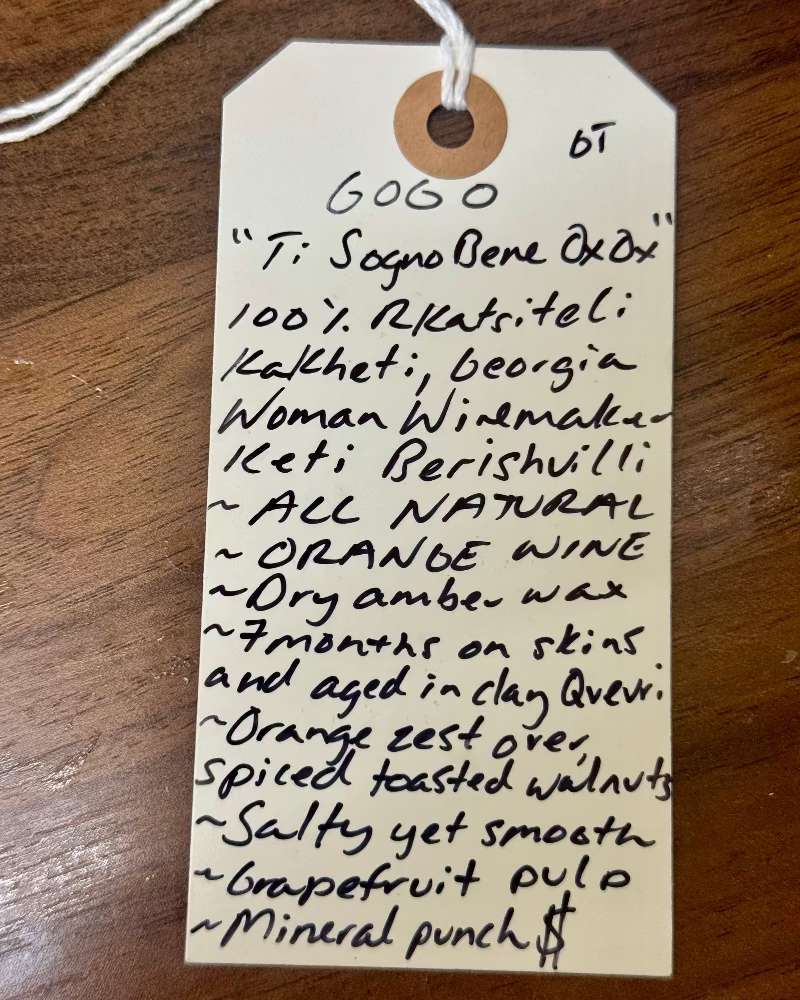 GT
GOGO
"Ti Sogno Bene OxOx"
100% Rkatsiteli
Kakheti, Georgia
Woman Winemaker
Keti Berishvilli
~ ALL NATURAL
~ ORANGE WINE
~Dry amber wax
~7months on skins
and aged in clay Qvevri.
~Orange zest over
spiced toasted walnuts
~Salty yet smooth
~Grapefruit pulp
~Mineral punch $